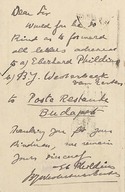 Dear Sir
Would you be so
kind as to forward
all letters addressed
to a/ Eberhard Phildius
b/ B.J. Westerbeek
van Eerten
to Poste Restante
Budapest
Thanking you for your
kindness, we remain
yours sincerely